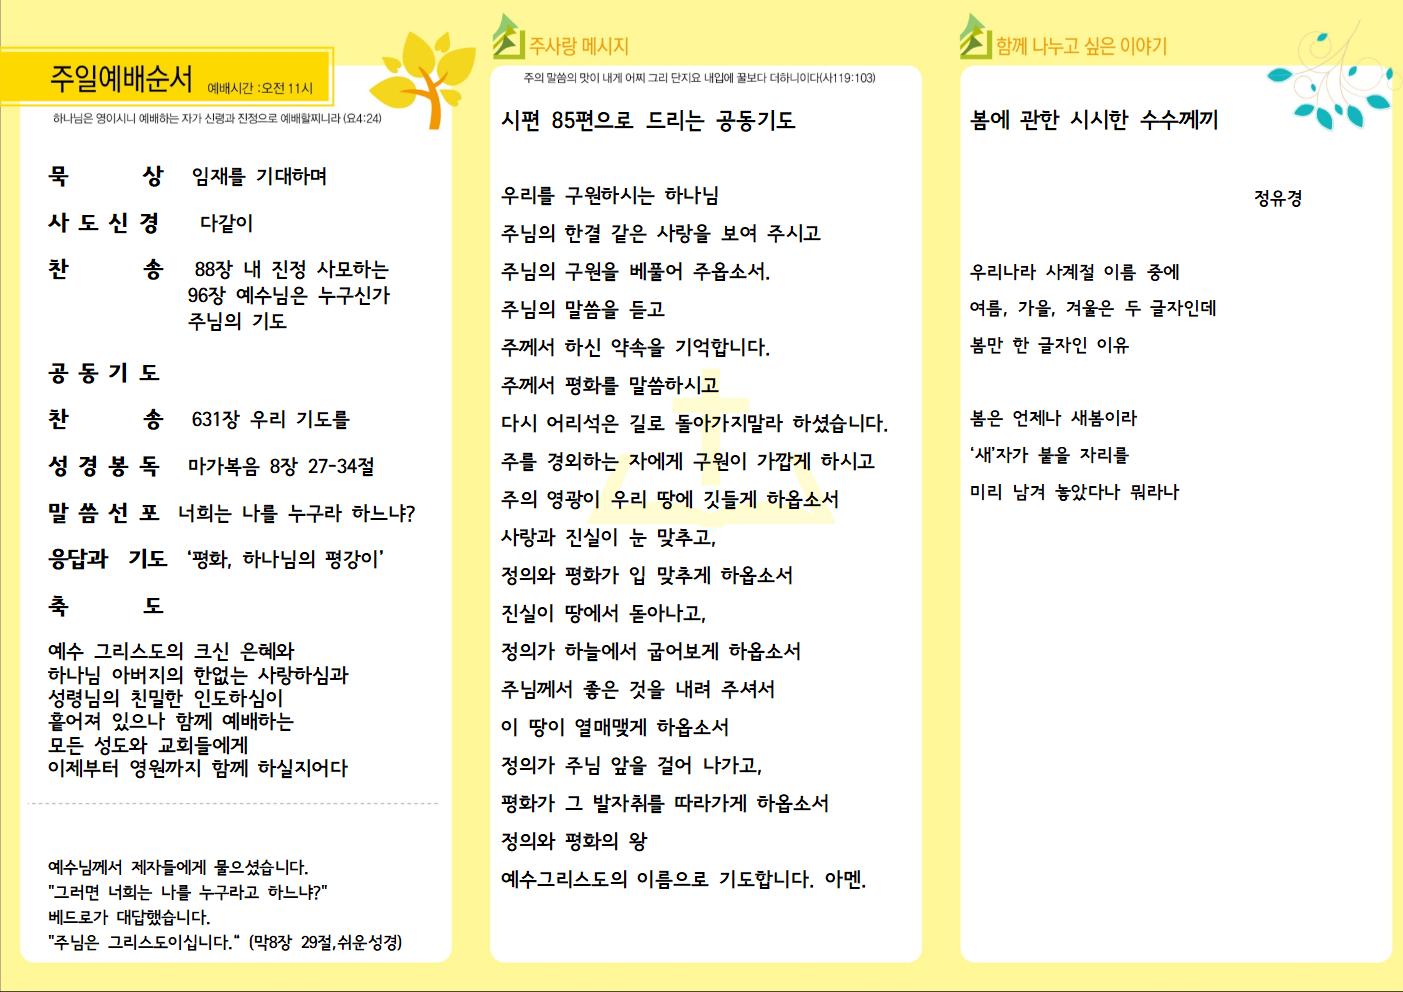 주일예배순서 예배시간 :오전 11시
하나님은 영이시니 예배하는 자가 신령과 진정으로 예배할찌니라 (요4:24)
묵 상 임재를 기대하며
사 도 신 경 다같이
찬 송 88장 내 진정 사모하는
96장 예수님은 누구신가
주님의 기도
공 동 기 도
찬 송 631장 우리 기도를
성 경 봉 독 마가복음 8장 27-34절
말 씀 선 포 너희는 나를 누구라 하느냐?
응답과 기도 ‘평화, 하나님의 평강이’
축 도
예수 그리스도의 크신 은혜와
하나님 아버지의 한없는 사랑하심과
성령님의 친밀한 인도하심이
흩어져 있으나 함께 예배하는
모든 성도와 교회들에게
이제부터 영원까지 함께 하실지어다
예수님께서 제자들에게 물으셨습니다.
"그러면 너희는 나를 누구라고 하느냐?"
베드로가 대답했습니다.
"주님은 그리스도이십니다.“ (막8장 29절,쉬운성경)
주사랑 메시지
주의 말씀의 맛이 내게 어찌 그리 단지요 내입에 꿀보다 더하니이다(시119:103)
시편 85편으로 드리는 공동기도
우리를 구원하시는 하나님
주님의 한결 같은 사랑을 보여 주시고
주님의 구원을 베풀어 주옵소서.
주님의 말씀을 듣고
주께서 하신 약속을 기억합니다.
주께서 평화를 말씀하시고
다시 어리석은 길로 돌아가지말라 하셨습니다.
주를 경외하는 자에게 구원이 가깝게 하시고
주의 영광이 우리 땅에 깃들게 하옵소서
사랑과 진실이 눈 맞추고,
정의와 평화가 입 맞추게 하옵소서
진실이 땅에서 돋아나고,
정의가 하늘에서 굽어보게 하옵소서
주님께서 좋은 것을 내려 주셔서
이 땅이 열매맺게 하옵소서
정의가 주님 앞을 걸어 나가고,
평화가 그 발자취를 따라가게 하옵소서
정의와 평화의 왕
예수그리스도의 이름으로 기도합니다. 아멘.
함께 나누고 싶은 이야기
봄에 관한 시시한 수수께끼
정유경
우리나라 사계절 이름 중에
여름, 가을, 겨울은 두 글자인데
봄만 한 글자인 이유
봄은 언제나 새봄이라
‘새’자가 붙을 자리를
미리 남겨 놓았다나 뭐라나